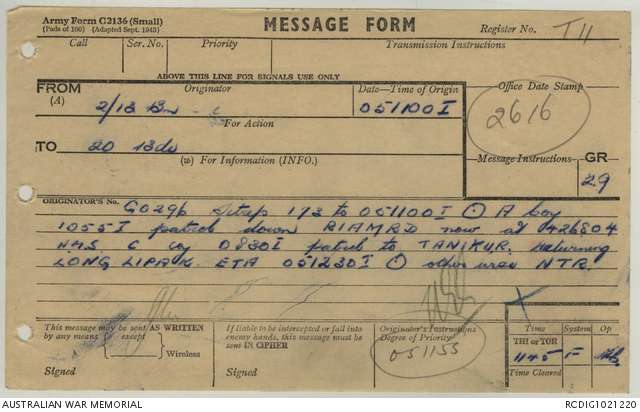 Army Form C2136 (Small)
(Pads of 100) (Adapted Sept. 1943)
MESSAGE FORM
Register No. T 11
Call Ser. No. Priority Transmission Instructions
ABOVE THIS LINE FOR SIGNALS USE ONLY
FROM Originator Date—Time of Origin Office Date Stamp
(A) 2/13 Bn 051100I
2616
For Action
TO 20 Bde
(w) For Information (INFO.) Message Instructions GR
29
ORIGINATOR'S No.
GO296 Sitrep 173 to 051100I ⊙ A coy
1055I patrol down RIAMRD now at 426804
C coy 0830I patrol to TANIKUR. returning
LONG LIPAK. ETA 051230I ⊙ other areas NTR.
This message may be sent AS WRITTEN
by any means except
Wireless
Signed
If liable to be intercepted or fall into
enemy hands, this message must be
sent IN CIPHER
Signed
Originator's Instructions
Degree of Priority
051155
Time System Op
THI or TOR
1145 F
Time Cleared
AUSTRALIAN WAR MEMORIAL RCDIG1021220